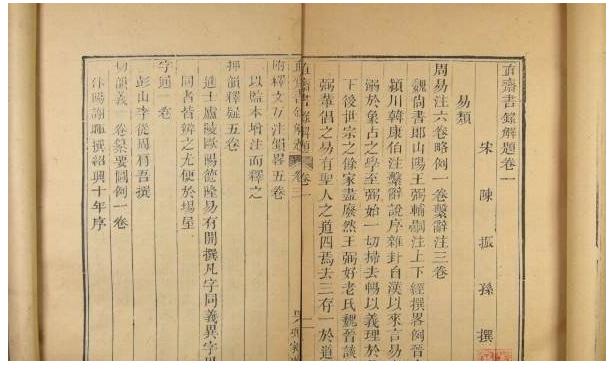 直齋書錄解題卷一
宋 陳 振 孫 撰
易類
周易注六卷略例一卷繫辭注三卷
魏尚書郎山陽王弼輔嗣注上下經撰略例晉
潁川韓康伯注繫辭說序雜卦自漢以來言易
溺於象占之學至弼始一切掃去暢以義理於
下後世宗之餘家盡廢然王弼好老氏魏晉談
弼輩倡之易有聖人之道四焉去三存一於道
直齋書錄解題 卷一
附釋文互注韻略五卷
以監本增注而釋之
押韻釋疑五卷
進士廬陵歐陽德隆易有開撰凡字同義異字
同者皆辨之尤便於場屋
字通一卷
彭山李從周肩吾撰
切韻義一卷纂要圖例一卷
汴陽謝暉撰紹興十年序